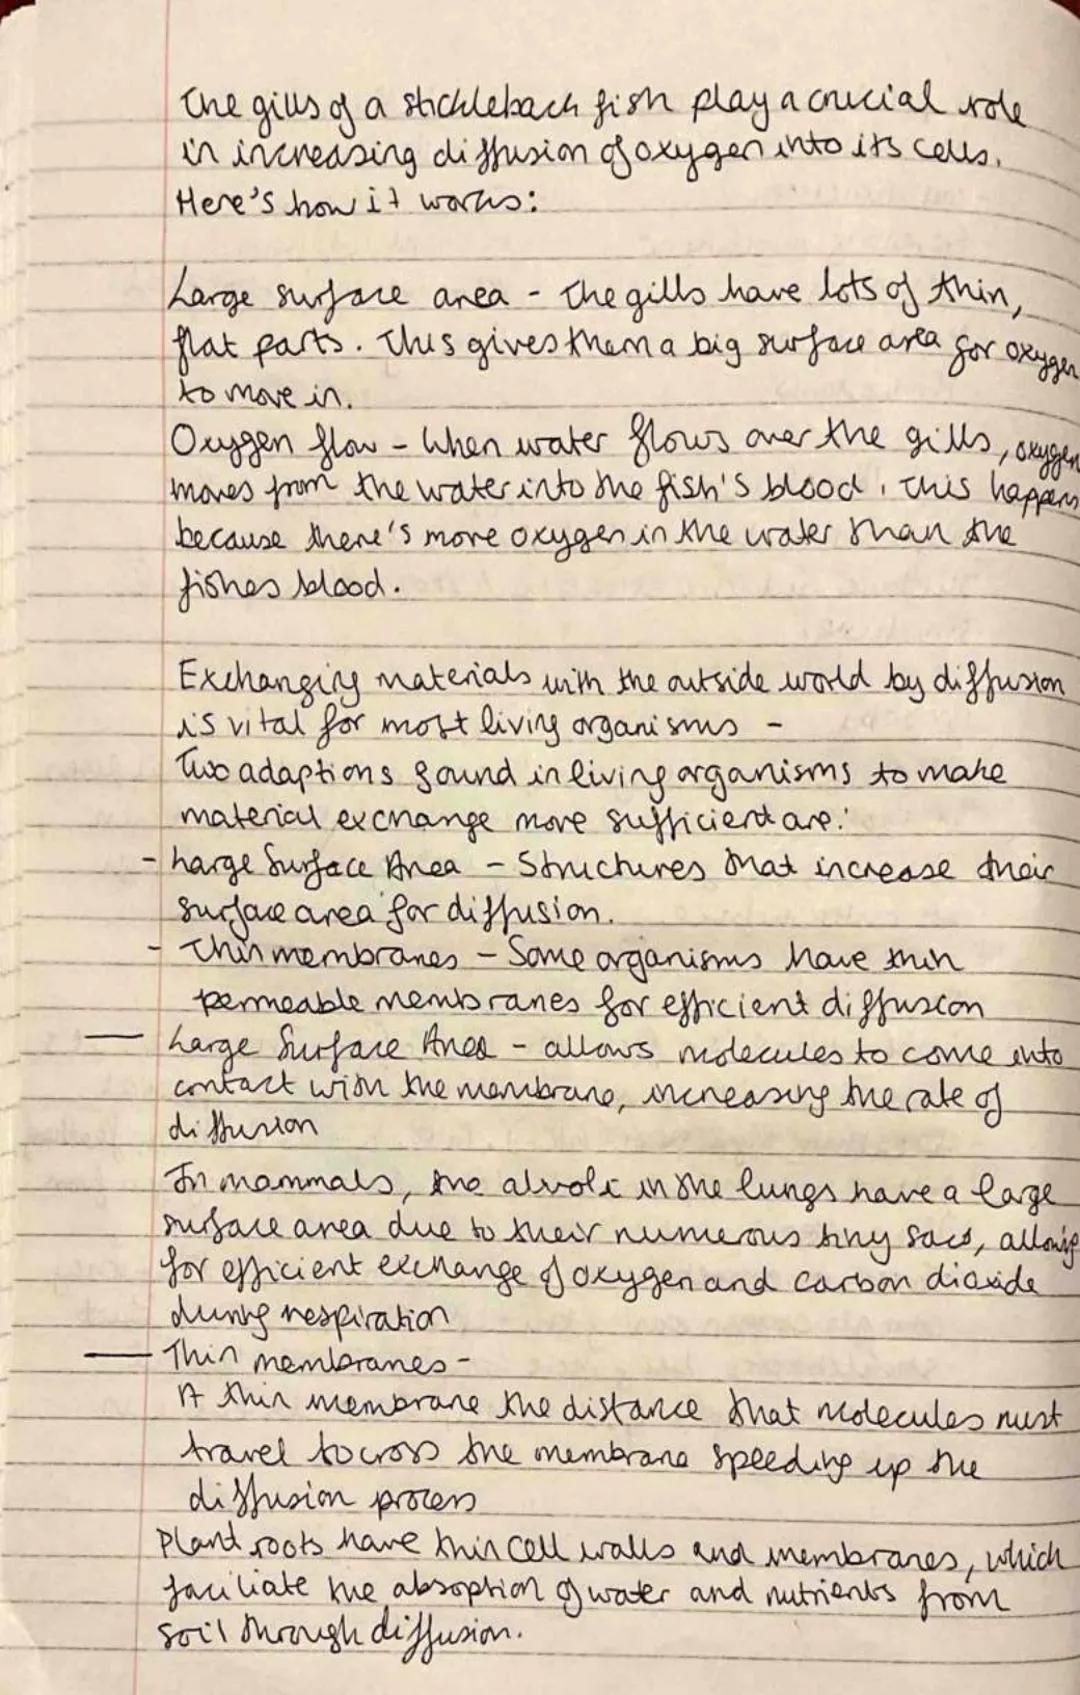 The gills of a stickleback fish play a crucial role
in increasing diffusion of oxygen into its cells.
Here's how it works:
Large surface area - The gills have lots of thin,
flat parts. This gives them a big surface area for oxygen
to move in.
Oxygen flow - When water flows over the gills, oxygen
moves from the water into the fish's blood. This happens
because there's more oxygen in the water than the
fishes blood.
Exchanging materials with the outside world by diffusion
is vital for most living organisms -
Two adaptions found in living organisms to make
material exchange more sufficient are:
- Large Surface Area - Structures that increase their
surface area for diffusion.
- Thin membranes - Some organisms have thin
permeable membranes for efficient diffusion
— Large Surface Area - allows molecules to come into
contact with the membrane, increasing the rate of
diffusion
In mammals, the alvoli in the lungs have a large
surface area due to their numerous tiny sacs, allowing
for efficient exchange of oxygen and carbon dioxide
during respiration
— Thin membranes -
A thin membrane the distance that molecules must
travel to cross the membrane speeding up the
diffusion process
Plant roots have thin cell walls and membranes, which
faciliate the absoption of water and nutrients from
soil through diffusion.